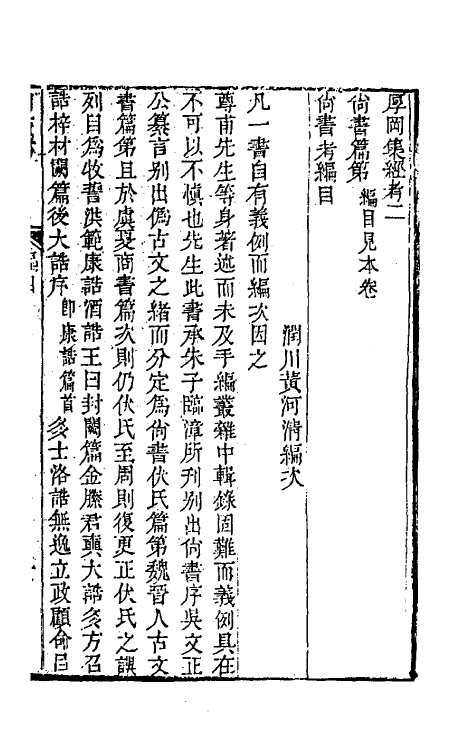 厚岡集經考二
尙書篇第 編目見本卷
尙書考編目
潤川黃河淸編次
凡一書自有義例而編次因之
尊甫先生等身著述而未及手編叢雜中輯錄固難而義例具在
不可以不愼也先生此書承朱子臨漳所刊別出尙書序吳文正
公纂言別出僞古文之緒而分定爲尙書伏氏篇第魏晉人古文
書篇第且於虞夏商書篇次則仍伏氏至周則復更正伏氏之誤
列目爲牧誓洪範康誥酒誥王曰封闕篇金縢君奭大誥多方召
誥梓材闕篇後大誥序 卽康誥篇首 多士洛誥無逸立政顧命呂